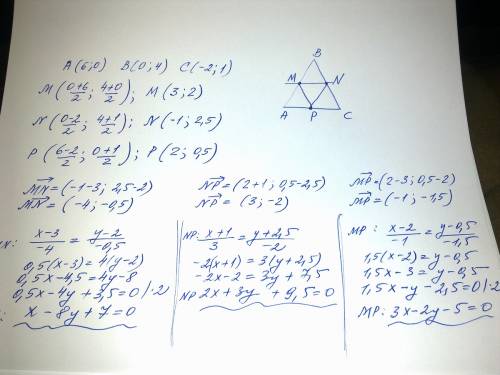 A(6;0) B(0;4) C(-2;1)
M(0+6/2; 4+0/2); M(3;2)
N(0-2/2; 4+1/2); N(-1; 2,5)
P(6-2/2; 0+1/2); P(2; 0,5)
B
M N
A P C
MN=(-1-3; 2,5-2)
MN=(-4; -0,5)
x-3/-4 = y-2/-0,5
0,5(x-3)=4(y-2)
0,5x-4,5=4y-8
0,5x-4y+3,5=0 |·2
x-8y+7=0
NP=(2+1; 0,5-2,5)
NP=(3; -2)
NP: x+1/3 = y+2,5/-2
-2(x+1)=3(y+2,5)
-2x-2=3y+7,5
NP 2x+3y+9,5=0
MP=(2-3; 0,5-2)
MP=(-1; -1,5)
MP: x-2/-1 = y-0,5/-1,5
1,5(x-2)=y-0,5
1,5x-3=y-0,5
1,5x-y-2,5=0 |·2
MP: 3x-2y-5=0